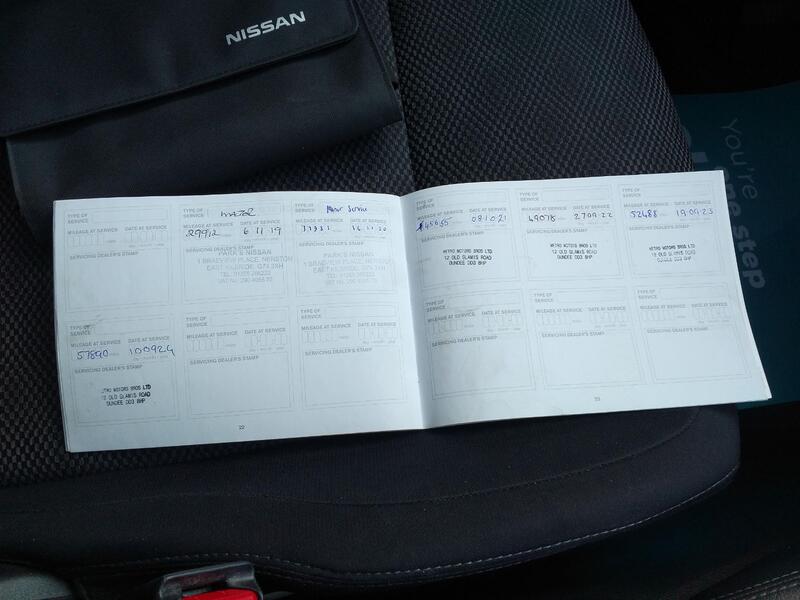 NISSAN
You're
one step
TYPE OF
SERVICE
MILEAGE AT SERVICE
DATE AT SERVICE
SERVICING DEALER'S STAMP
TYPE OF
SERVICE
MAJOR
MILEAGE AT SERVICE
DATE AT SERVICE
29912
6 11 19
SERVICING DEALER'S STAMP
PARKS NISSAN
EAST KILBRIDE, G74
TYPE OF
SERVICE
Minor Service
MILEAGE AT SERVICE
DATE AT SERVICE
16 11 20
SERVICING DEALER'S STAMP
PARKS NISSAN
TYPE OF
SERVICE
MILEAGE AT SERVICE
DATE AT SERVICE
57890
100924
SERVICING DEALER'S STAMP
METRO MOTORS BROS LTD
12 OLD GLAMIS ROAD
DUNDEE DD3 8HP
TYPE OF
SERVICE
MILEAGE AT SERVICE
DATE AT SERVICE
SERVICING DEALER'S STAMP
TYPE OF
SERVICE
MILEAGE AT SERVICE
DATE AT SERVICE
SERVICING DEALER'S STAMP
22
TYPE OF
SERVICE
MILEAGE AT SERVICE
DATE AT SERVICE
081021
SERVICING DEALER'S STAMP
METRO MOTORS BROS LTD
12 OLD GLAMIS ROAD
DUNDEE DD3 8HP
TYPE OF
SERVICE
MILEAGE AT SERVICE
DATE AT SERVICE
49078
270922
SERVICING DEALER'S STAMP
METRO MOTORS BROS LTD
12 OLD GLAMIS ROAD
DUNDEE DD3 8HP
TYPE OF
SERVICE
MILEAGE AT SERVICE
DATE AT SERVICE
52488
190923
SERVICING DEALER'S STAMP
METRO MOTORS BROS LTD
12 OLD GLAMIS ROAD
DUNDEE DD3 8HP
TYPE OF
SERVICE
MILEAGE AT SERVICE
DATE AT SERVICE
SERVICING DEALER'S STAMP
TYPE OF
SERVICE
MILEAGE AT SERVICE
DATE AT SERVICE
SERVICING DEALER'S STAMP
TYPE OF
SERVICE
MILEAGE AT SERVICE
DATE AT SERVICE
SERVICING DEALER'S STAMP
23